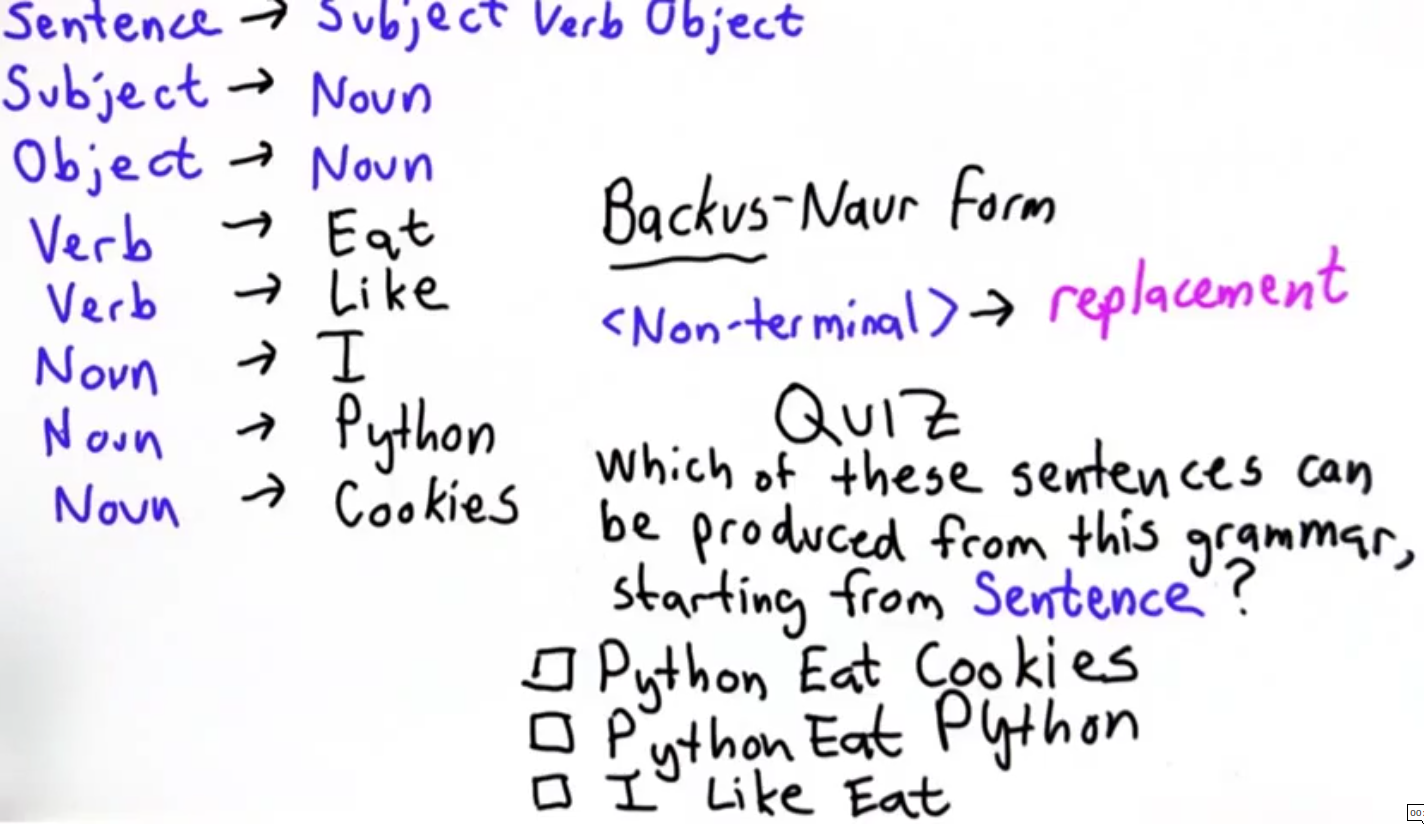 Sentence → Subject Verb Object
Subject → Noun
Object → Noun
Verb → Eat
Verb → Like
Noun → I
Noun → Python
Noun → Cookies
Backus-Naur Form
<Non-terminal> → replacement
QUIZ
Which of these sentences can
be produced from this grammar,
starting from Sentence?
□ Python Eat Cookies
□ Python Eat Python
□ I Like Eat